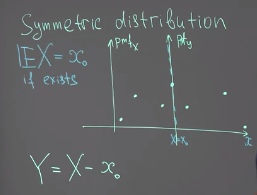 Symmetric distribution
EX = x₀
if exists
pmfₓ
pmfᵧ
x
Y = X - x₀